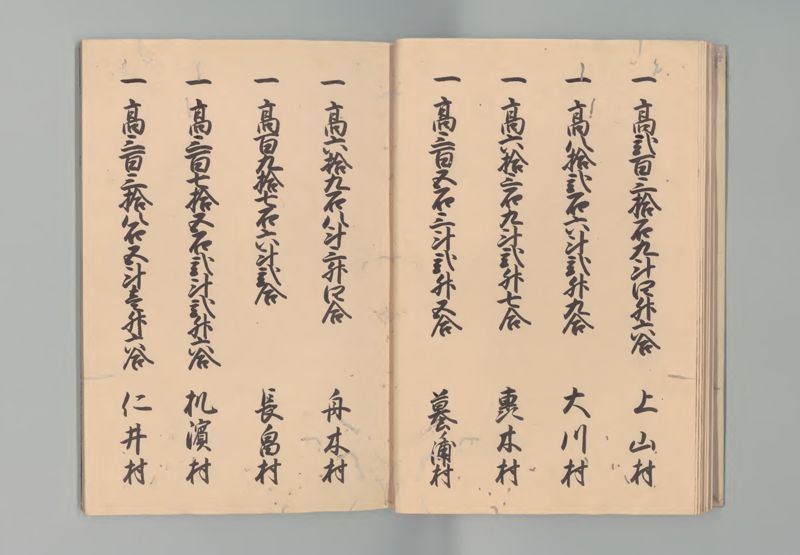 一 高弐百三拾石九斗四升六合 上山村
一 高八拾弐石六斗弐升九合 大川村
一 高六拾三石九斗弐升七合 木村
一 高三百五石三斗弐升五合 墓浦村
一 高六拾九石八斗三升四合 舟木村
一 高百九拾七石六斗弐合 長畠村
一 高三百七拾五石弐斗弐升六合 机濱村
一 高三百三拾八石五斗壱升六合 仁井村